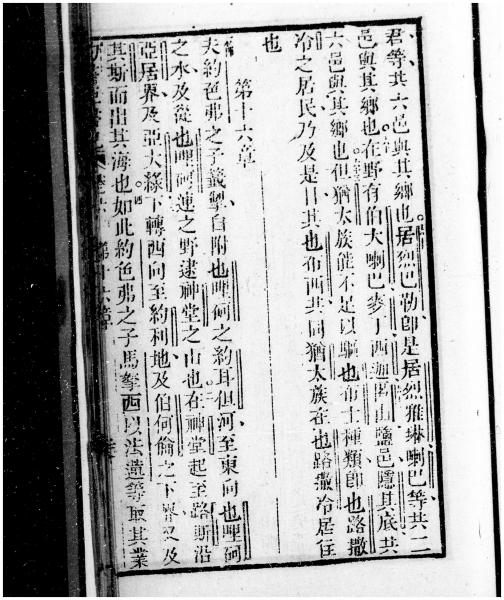 君等共六邑與其鄉也居烈巴勒卽是居烈雅琳喇巴等共二
邑與其鄉也在野有伯大喇巴麥丁西迦因山鹽邑隱其底共
六邑與其鄉也但猶太族能不足以驅也布士種類卽也路撒
冷之居民乃及是日其也布西共同猶太族在也路撒冷居住
也
第十六章
夫約色弗之子籤掣自附也哩何之約耳但河至東向也哩何
之水及從也哩何連之野逮神堂之山也在神堂起至路斯沿
亞居界及亞大綠下轉西向至約利地及伯何倫之下界又及
其斯而出其海也如此約色弗之子馬拏西以法造等取其業
第十六章